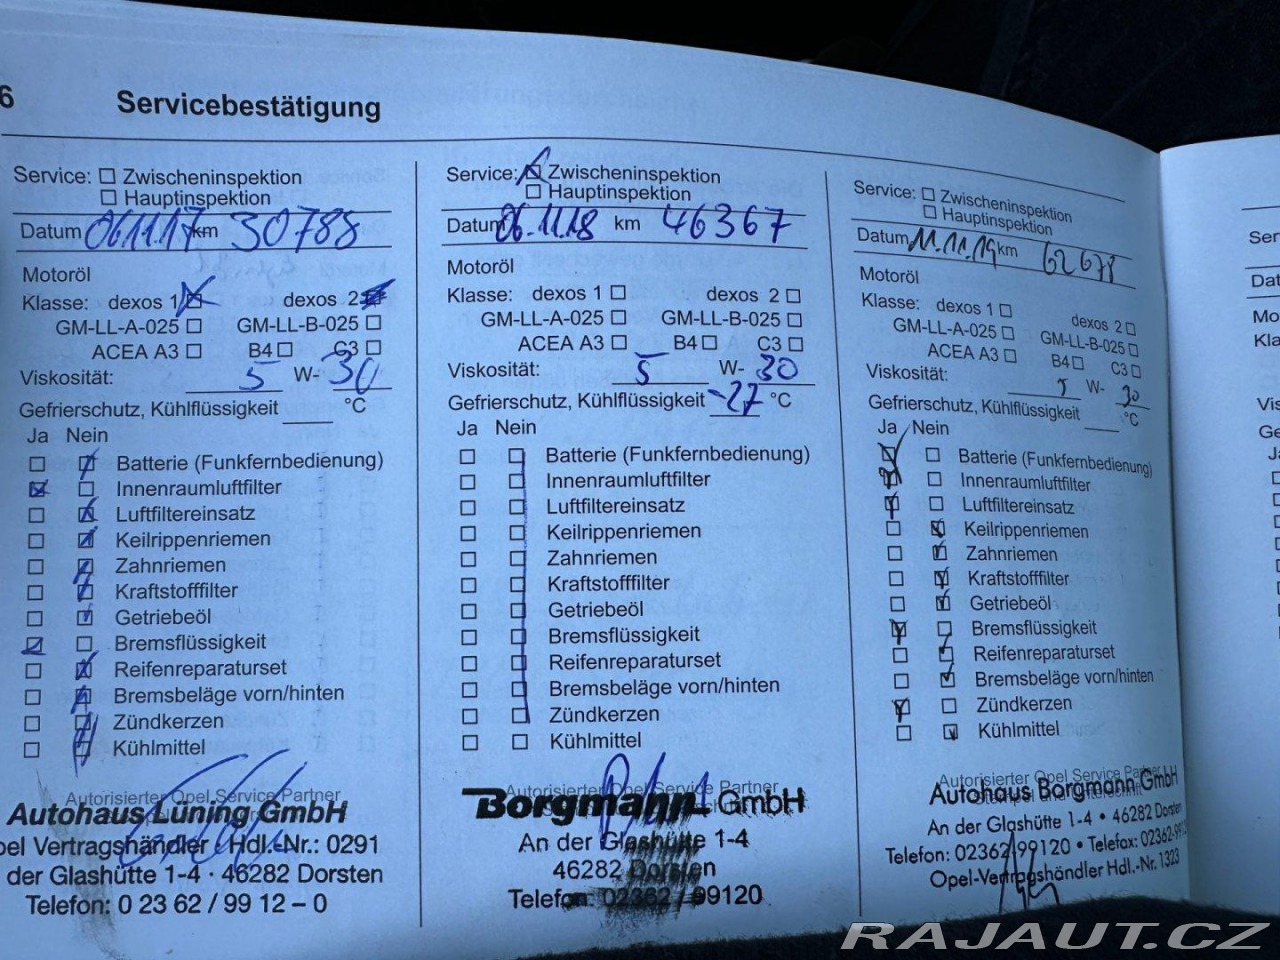 6 Servicebestätigung
Service: Zwischeninspektion
Hauptinspektion
Datum 06.11.17 km 30788
Motoröl
Klasse: dexos 1 dexos 2
GM-LL-A-025 GM-LL-B-025
ACEA A3 B4 C3
Viskosität: 5 W- 30
Gefrierschutz, Kühlflüssigkeit °C
Ja Nein
Batterie (Funkfernbedienung)
Innenraumluftfilter
Luftfiltereinsatz
Keilrippenriemen
Zahnriemen
Kraftstofffilter
Getriebeöl
Bremsflüssigkeit
Reifenreparaturset
Bremsbeläge vorn/hinten
Zündkerzen
Kühlmittel
Autorisierter Opel Service Partner
Autohaus Lüning GmbH
pel Vertragshändler · Hdl.-Nr.: 0291
der Glashütte 1-4 · 46282 Dorsten
Telefon: 0 23 62 / 99 12 – 0
Service: Zwischeninspektion
Hauptinspektion
Datum 06.11.18 km 46367
Motoröl
Klasse: dexos 1 dexos 2
GM-LL-A-025 GM-LL-B-025
ACEA A3 B4 C3
Viskosität: 5 W- 30
Gefrierschutz, Kühlflüssigkeit -27 °C
Ja Nein
Batterie (Funkfernbedienung)
Innenraumluftfilter
Luftfiltereinsatz
Keilrippenriemen
Zahnriemen
Kraftstofffilter
Getriebeöl
Bremsflüssigkeit
Reifenreparaturset
Bremsbeläge vorn/hinten
Zündkerzen
Kühlmittel
Autorisierter Opel Service Partner
Borgmann GmbH
An der Glashütte 1-4
46282 Dorsten
Telefon 02362 / 99120
Service: Zwischeninspektion
Hauptinspektion
Datum 11.11.19 km 62678
Motoröl
Klasse: dexos 1 dexos 2
GM-LL-A-025 GM-LL-B-025
ACEA A3 B4 C3
Viskosität: 5 W- 30
Gefrierschutz, Kühlflüssigkeit °C
Ja Nein
Batterie (Funkfernbedienung)
Innenraumluftfilter
Luftfiltereinsatz
Keilrippenriemen
Zahnriemen
Kraftstofffilter
Getriebeöl
Bremsflüssigkeit
Reifenreparaturset
Bremsbeläge vorn/hinten
Zündkerzen
Kühlmittel
Autorisierter Opel Service Partner
Autohaus Borgmann GmbH
An der Glashütte 1-4 • 46282 Dorsten
Telefon: 02362-99120 • Telefax: 02362-99
Opel-Vertragshändler Hdl.-Nr. 1323
Ser
Dat
Mo
Kla
Vis
Ge
Ja
RAJAUT.CZ